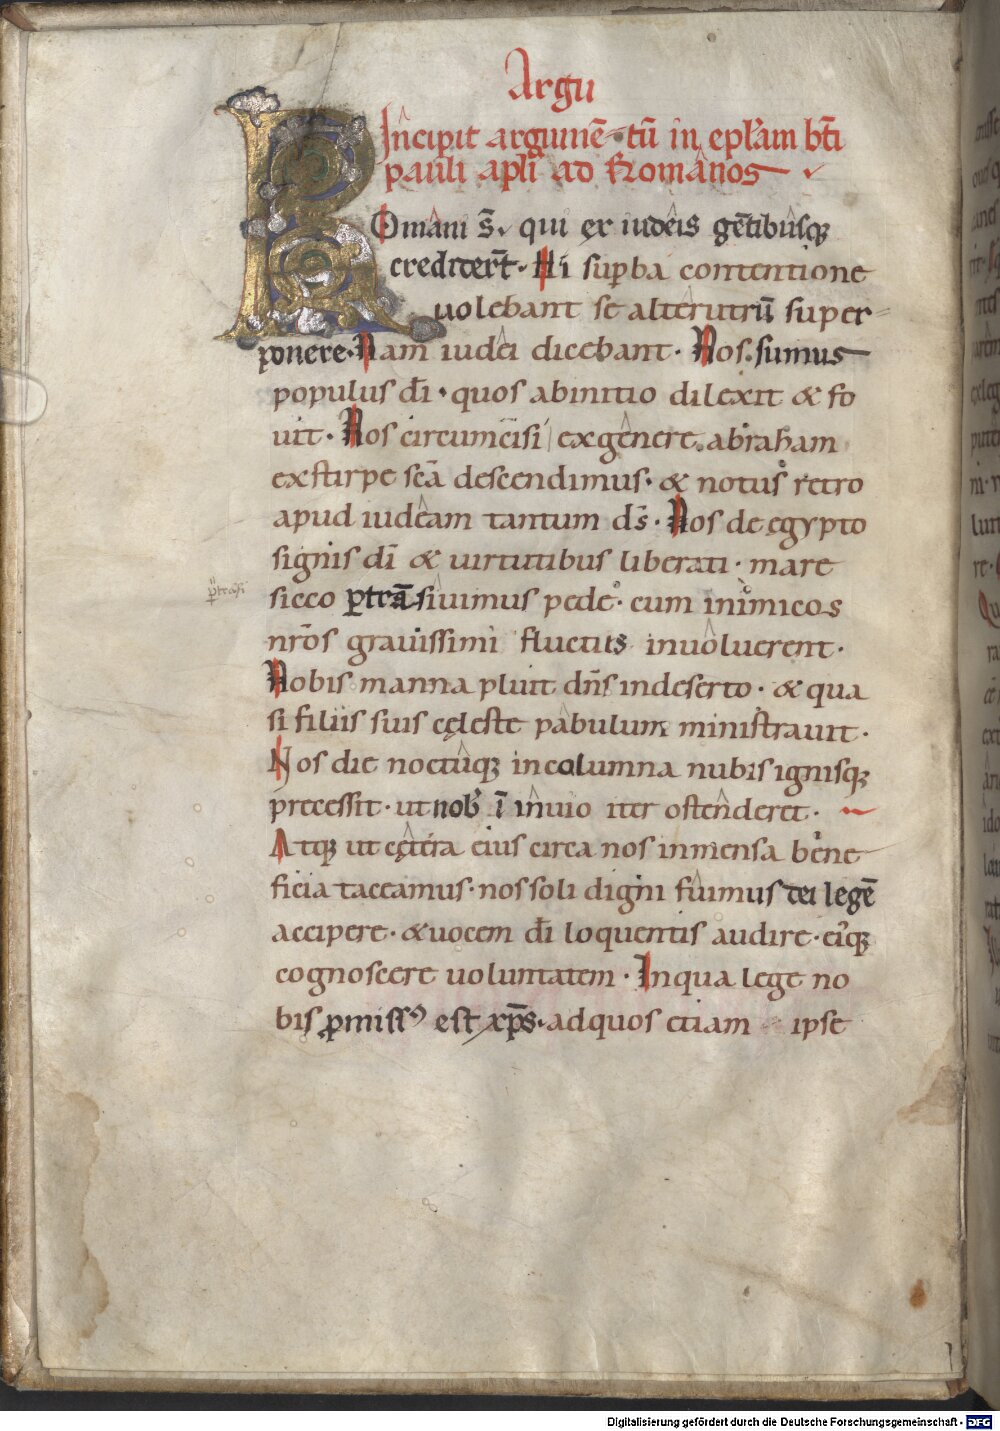 Argu
Incipit argumē tū in epl̄am bt̄i
pauli apl̄i ad Romanos
Romani s̄. qui ex iudeis gētibusq;
credidert̄. Hi supba contentione
uolebant se alterutrū super
ponere. Nam iudei dicebant. Nos sumus
populus dī. quos abinitio dilexit & fo
uit. Nos circumcisi exgenere abraham
exstirpe scā descendimus. & notus retro
apud iudeam tantum ds̄. Nos de egypto
signis dī & uirtutibus liberati. mare
sicco ptrāsiuimus pede. cum inimicos
nr̄os grauissimi fluctus inuoluerent.
ptrāsi
Nobis manna pluit dn̄s indeserto. & qua
si filiis suis cęleste pabulum ministrauit.
Nos die noctuq; incolumna nubis ignisq;
precessit. ut nob ī inuio iter ostenderet.
Atq; ut cętera eius circa nos inmensa bene
ficia taceamus. nos soli digni fuimus dei legē
accipere. & uocem dī loquentis audire. eiq;
cognoscere uoluntatem. Inqua lege no
bis ꝓmissꝰ est xp̄s. adquos etiam ipse
Digitalisierung gefördert durch die Deutsche Forschungsgemeinschaft - DFG